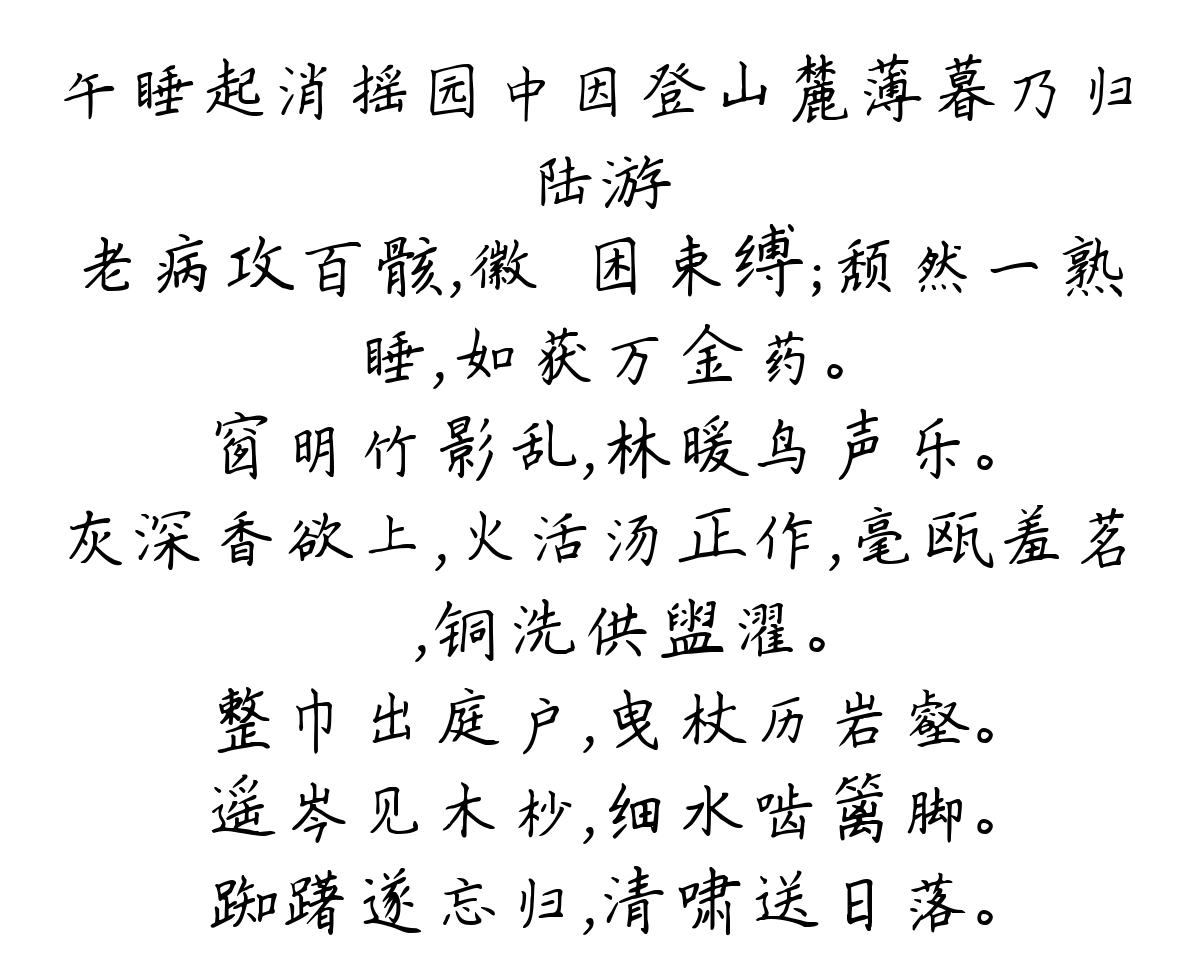 午睡起消摇园中因登山麓薄暮乃归
陆游
老病攻百骸,徽 困束缚;颓然一熟
睡,如获万金药。
窗明竹影乱,林暖鸟声乐。
灰深香欲上,火活汤正作,毫瓯羞茗
,铜洗供盥濯。
整巾出庭户,曳杖历岩壑。
遥岑见木杪,细水啮篱脚。
踟躇遂忘归,清啸送日落。